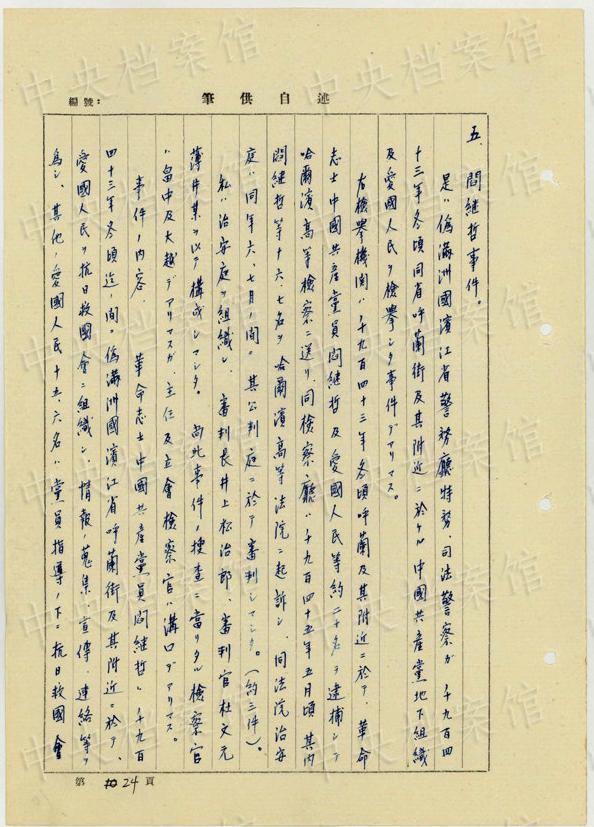 編號：
筆供自述
五、問継哲事件。
是ハ偽滿洲國濱江省警務廳特務、司法警察ガ千九百四
十三年冬頃同省呼蘭街及其附近ニ於ケル中國共産黨地下組織
及愛國人民ヲ檢擧シタ事件デアリマス。
右檢擧機関ハ千九百四十三年冬頃呼蘭及其附近ニ於テ、革命
志士中國共産黨員問継哲及愛國人民等約二十名ヲ逮捕シテ
哈爾濱高等檢察ニ送リ、同檢察廳ハ千九百四十五年五月頃其内
問継哲等十六、七名ヲ哈爾濱高等法院ニ起訴シ、同法院治安
庭ハ同年六、七月ノ間ニ其公判庭ニ於テ審判シマシタ。（約三件）。
私ハ治安庭ヲ組織シ、審判長井上松治郎、審判官杜文元
薄井某ヲ以テ構成シマシタ。尚此事件ノ捜查ニ當リタル檢察官
ハ畠中及大越デアリマスガ、主任及立會檢察官ハ溝口デアリマス。
事件ノ内容、革命志士中國共産黨員問継哲ハ千九百
四十三年冬頃迄ノ間ニ偽滿洲國濱江省呼蘭街及其附近ニ於テ、
愛國人民ヲ抗日救國會ニ組織シ、情報ノ蒐集、宣傳、連絡等ヲ
為シ、其他ノ愛國人民十五、六名ハ黨員指導ノ下ニ抗日救國會
第 24 頁
中央档案馆